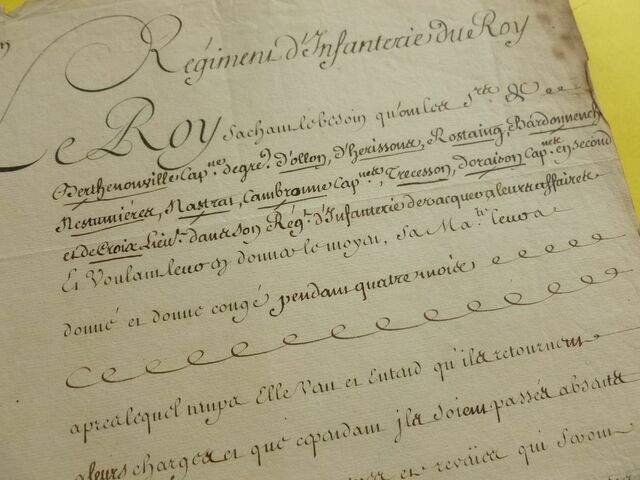 Régiment d'Infanterie du Roy
Le Roy sachant le besoin qu'ont les Srs. de
Berthenonville Capne. de gre. d'ollon, d'herissons, Rostaing, Bardonnench
Nestumiéres, Nastrac, Cambronne Capnes, Trecesson, Doraison Capnes. en second
et de Croix Lieut. dans son Régt. d'Infanterie de vacquer a leurs affaires
Et Voulant leur en donner le moyen, Sa Maté. leur a
donné et donne congé pendant quatre mois
apres lequel temps Elle Veut et Entend qu'ils retournent
a leurs charges et que cependant ils soient passés absents
et revües qui seront